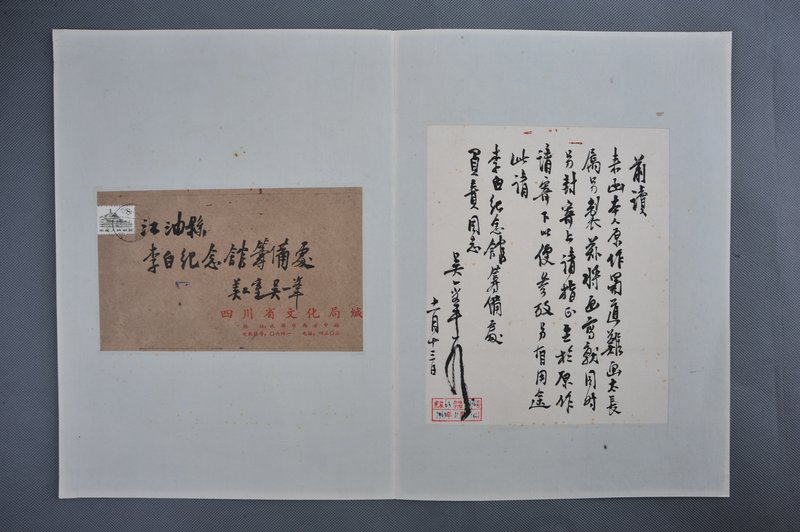 江油縣
李白纪念館筹備處
美工室吴一峯
四川省文化局缄
8
前讀
来函本人原作蜀道難画太長
属另製兹将画寫就同时
另封寄上请指正至於原作
请寄下以便参放另有用途
此请
李白纪念館筹備處
負責同志
吴一峯
十一月十三日